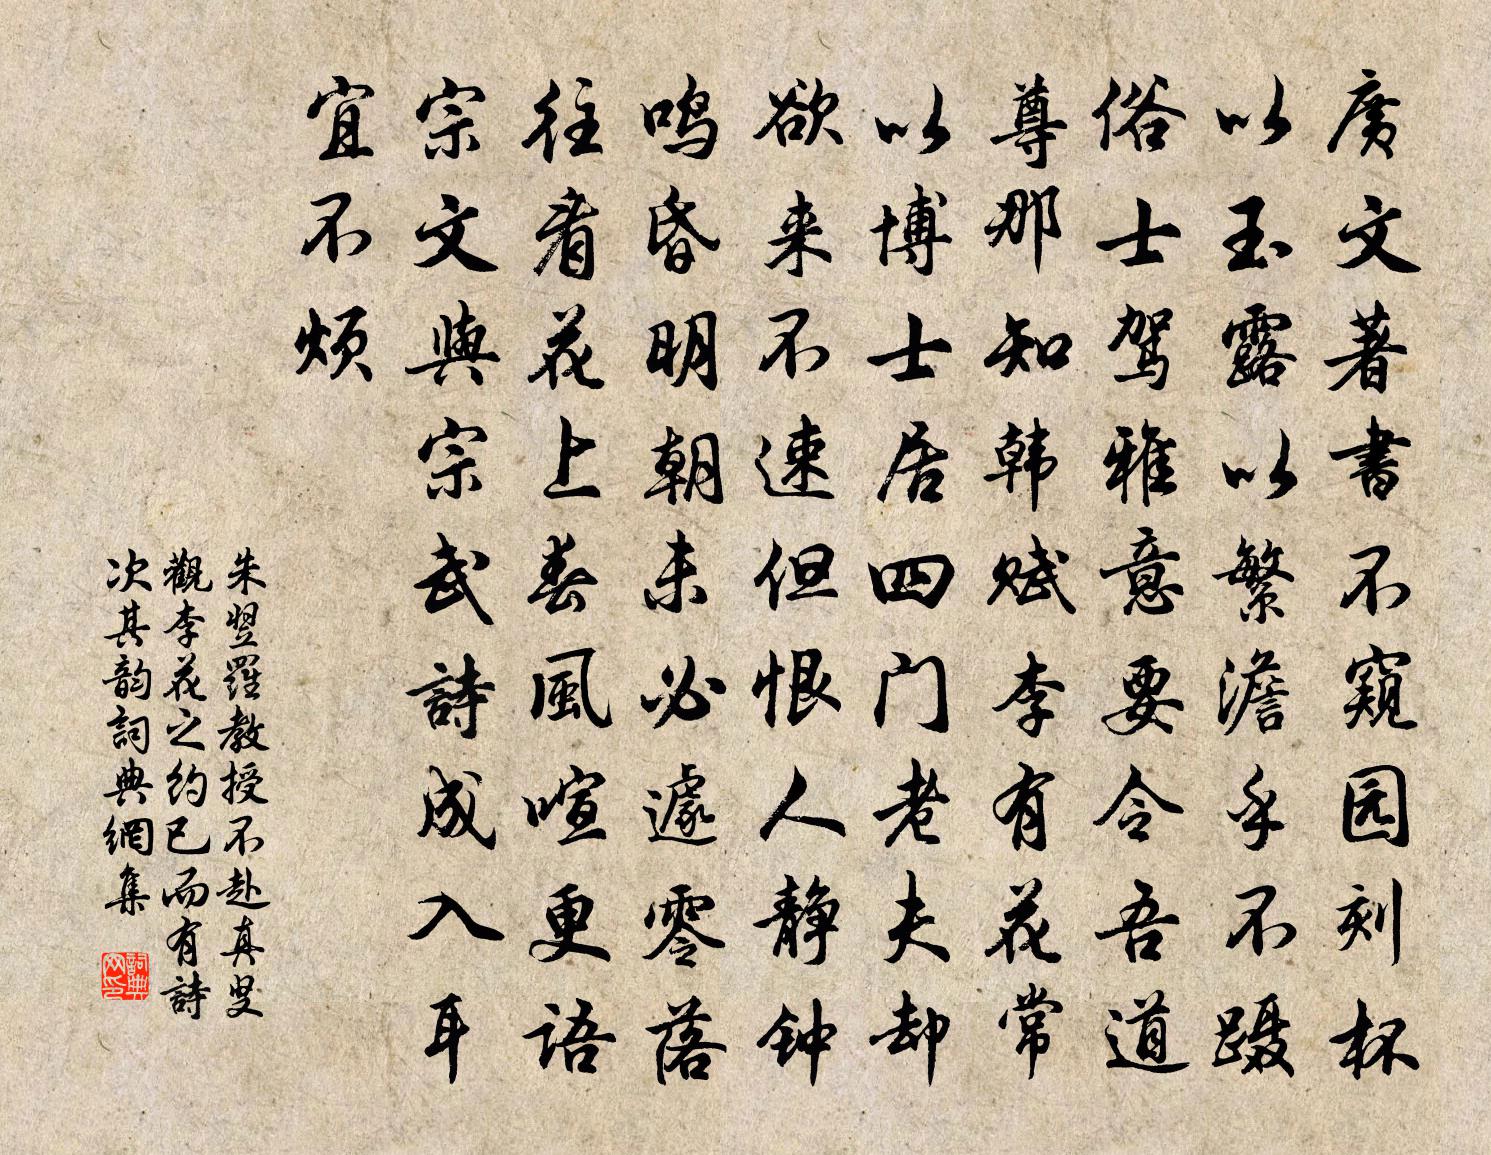 廣文著書不窺园刻杯
以玉露以繁澹手不蹑
俗士驾雅意要令吾道
尊那知韩赋李有花常
以博士居四门老夫却
欲来不速但恨人静钟
鸣昏明朝未必遽零落
往看花上春風喧更语
宗文與宗武詩成入耳
宜不烦
朱翌羅教授不赴真叟
觀李花之约已而有詩
次其韵詞典網集
詞典网印